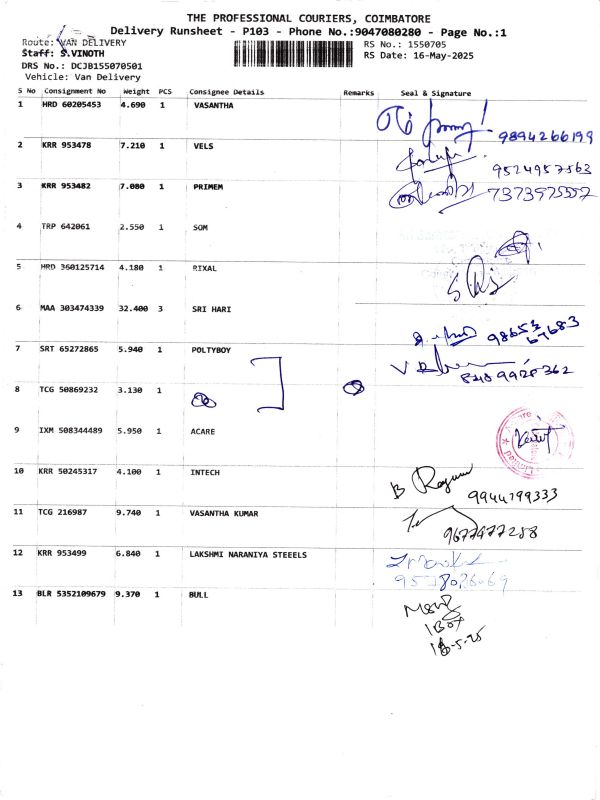 THE PROFESSIONAL COURIERS, COIMBATORE
Delivery Runsheet - P103 - Phone No.:9047080280 - Page No.:1
Route: VAN DELIVERY
RS No.: 1550705
Staff: S.VINOTH
RS Date: 16-May-2025
DRS No.: DCJB155070501
Vehicle: Van Delivery
S No Consignment No Weight PCS Consignee Details Remarks Seal & Signature
1 HRD 60205453 4.690 1 VASANTHA
9894266199
2 KRR 953478 7.210 1 VELS
9524957563
3 KRR 953482 7.080 1 PRIMEM
7373975557
4 TRP 642061 2.550 1 SOM
5 HRD 360125714 4.180 1 RIXAL
6 MAA 303474339 32.400 3 SRI HARI
7 SRT 65272865 5.940 1 POLTYBOY
8 TCG 50869232 3.130 1
9 IXM 508344489 5.950 1 ACARE
10 KRR 50245317 4.100 1 INTECH
9944799333
11 TCG 216987 9.740 1 VASANTHA KUMAR
9677977288
12 KRR 953499 6.840 1 LAKSHMI NARANIYA STEEELS
13 BLR 5352109679 9.370 1 BULL
1 BOX
16-5-25